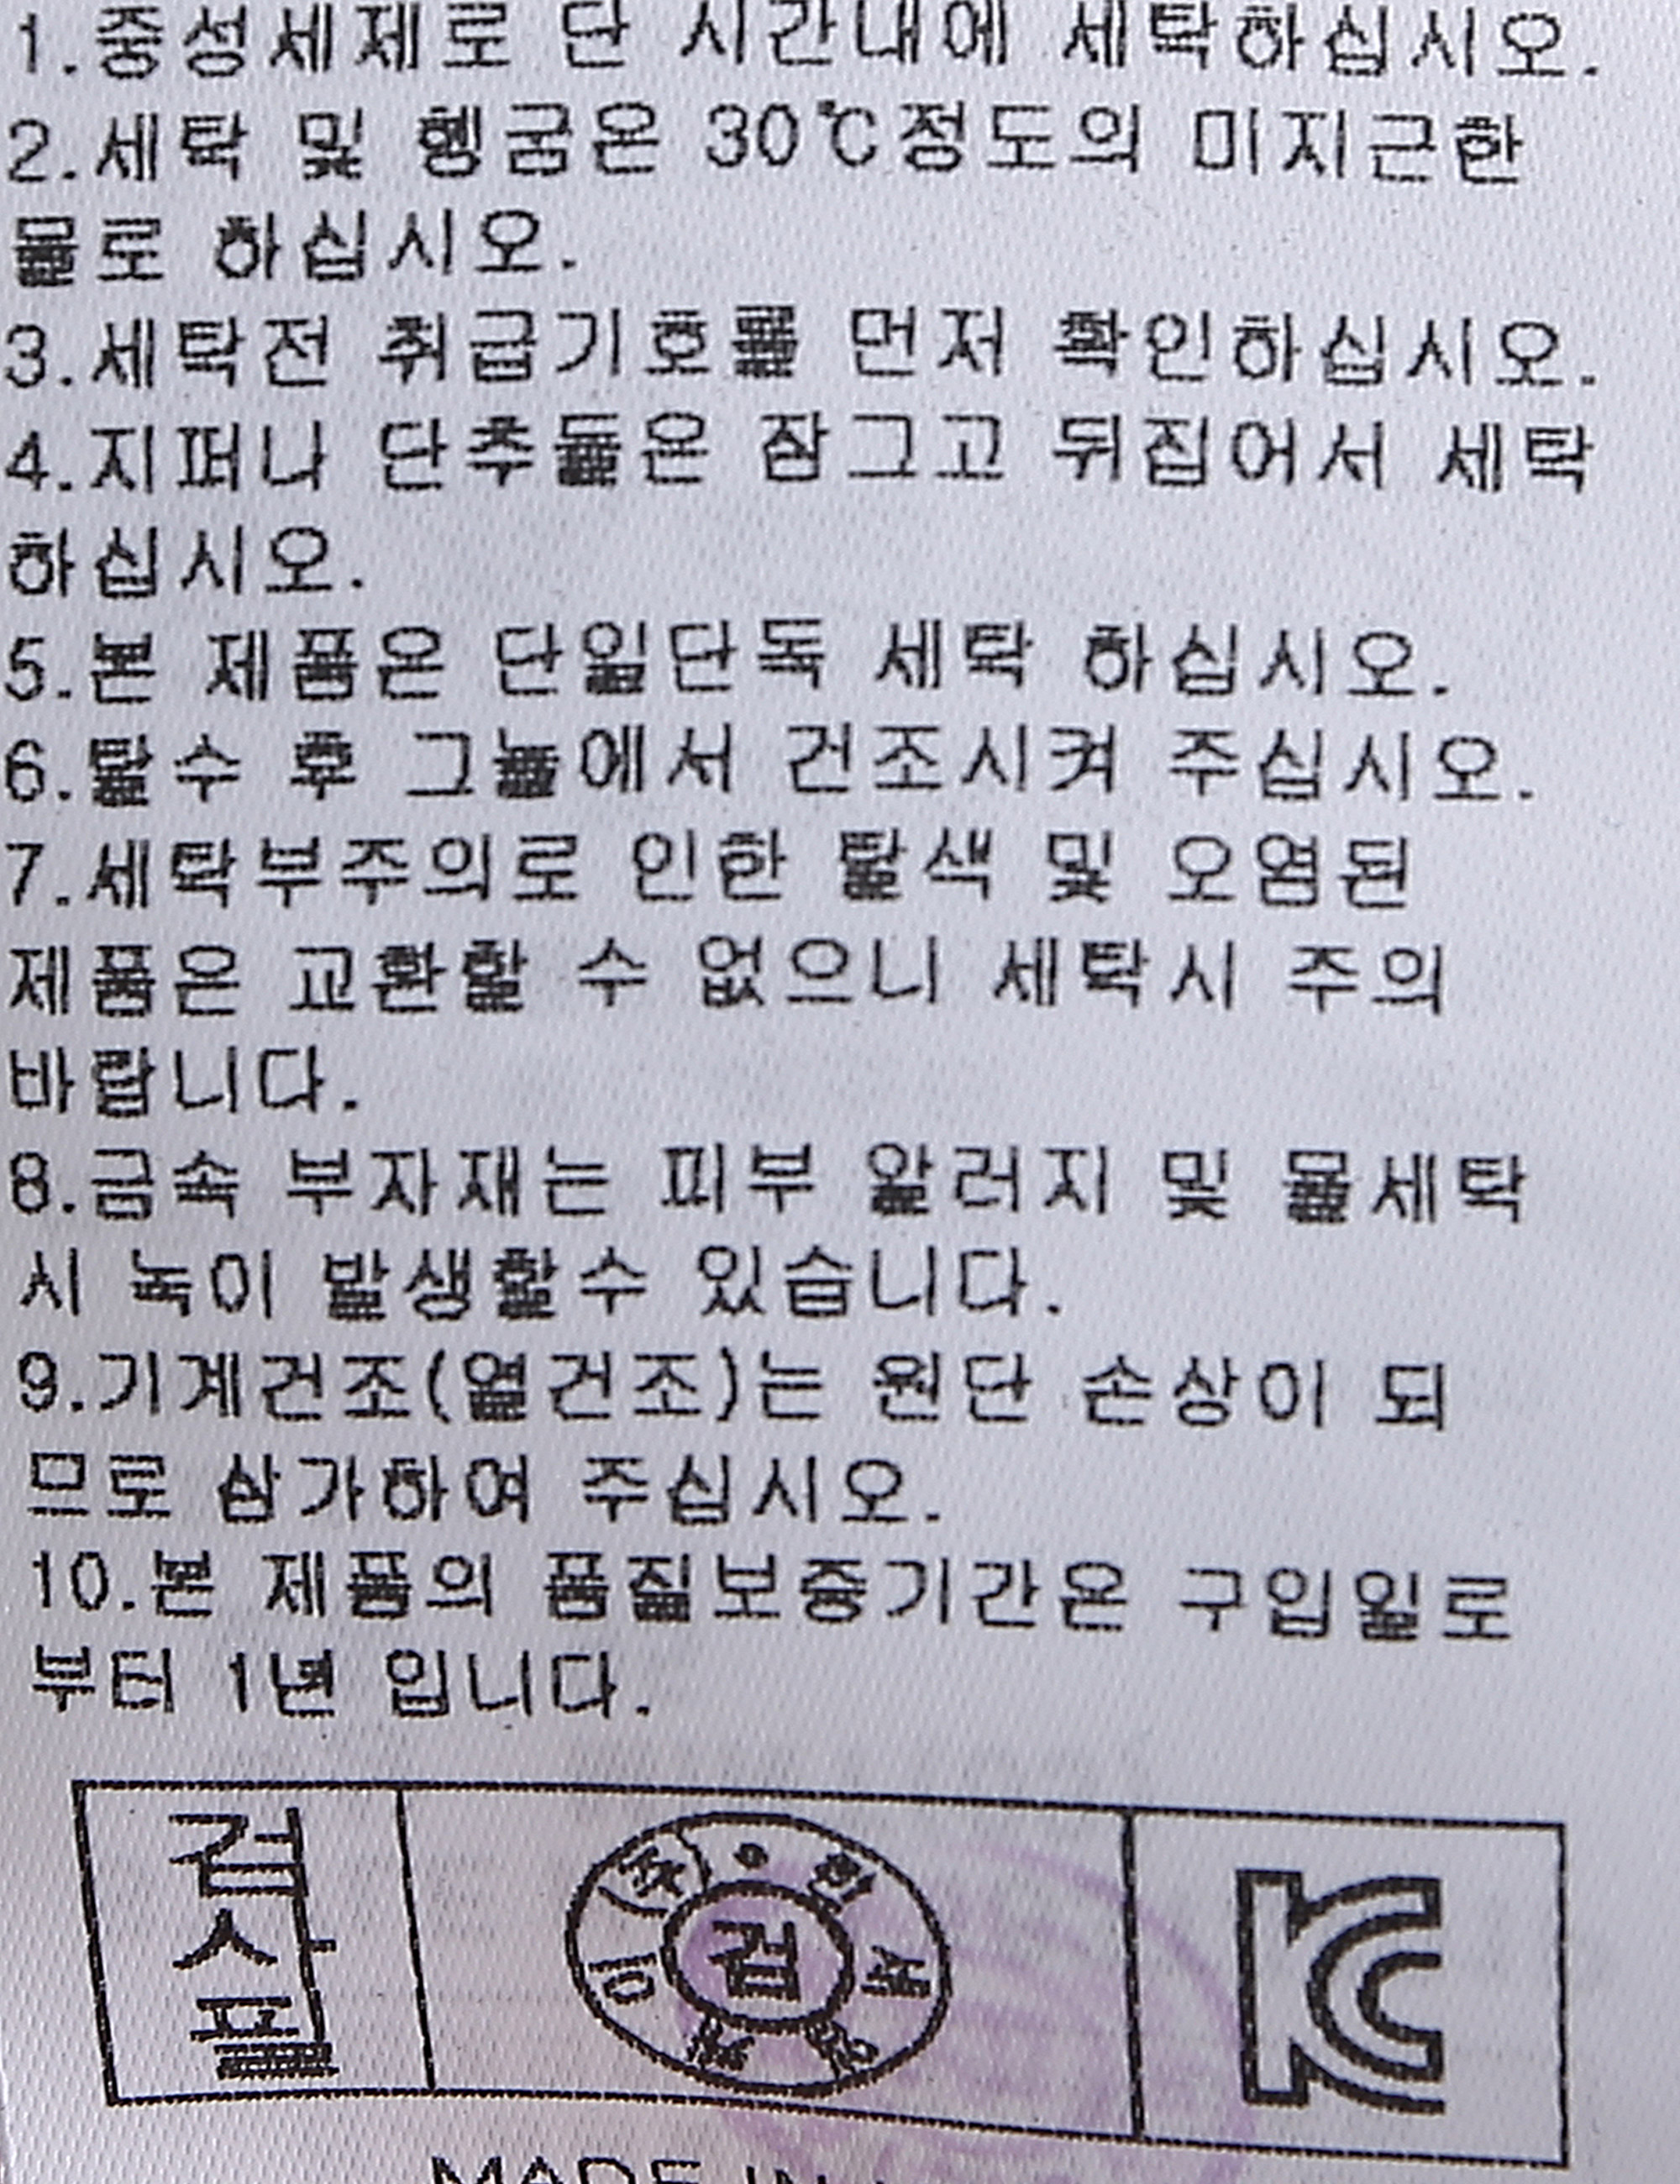 1.중성세제로 단 시간내에 세탁하십시오.
2.세탁 및 헹굼은 30℃정도의 미지근한
물로 하십시오.
3.세탁전 취급기호를 먼저 확인하십시오.
4.지퍼나 단추들은 잠그고 뒤집어서 세탁
하십시오.
5.본 제품은 단일단독 세탁 하십시오.
6.탈수 후 그늘에서 건조시켜 주십시오.
7.세탁부주의로 인한 탈색 및 오염된
제품은 교환할 수 없으니 세탁시 주의
바랍니다.
8.금속 부자재는 피부 알러지 및 물세탁
시 녹이 발생할수 있습니다.
9.기계건조(열건조)는 원단 손상이 되
므로 삼가하여 주십시오.
10.본 제품의 품질보증기간은 구입일로
부터 1년 입니다.
검사필
검
KC
MADE IN